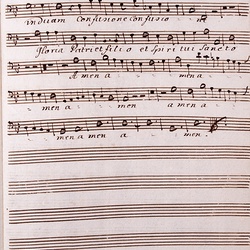 induam Confusione confusio
Gloria Patri et filio et Spiritui Sancto
Amen a mena
men a men a men a
men a men a a men